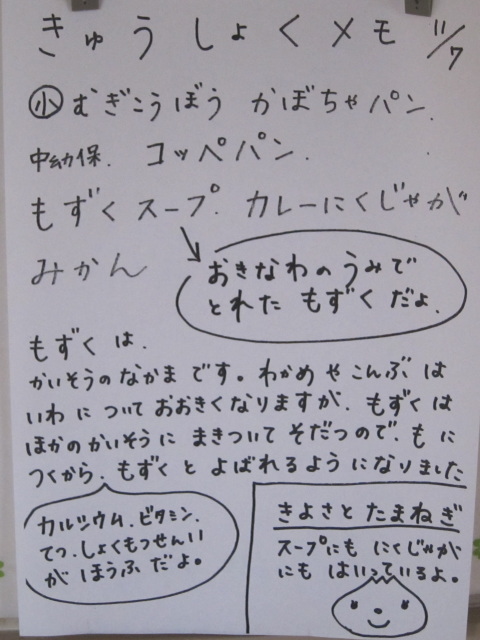 きゅうしょくメモ 11/7
㊥小 むぎこうぼう かぼちゃパン.
中幼保. コッペパン.
もずくスープ. カレーにくじゃが
みかん
おきなわのうみで
とれた もずくだよ.
もずくは.
かいそうのなかまです。わかめやこんぶは
いわについておおきくなりますが、もずくは
ほかのかいそうにまきついてそだつので、もに
つくから、もずくとよばれるようになりました
カルシウム.ビタミン.
てつ.しょくもつせんい
がほうふだよ。
きよさとたまねぎ
スープにもにくじゃが
にもはいっているよ。